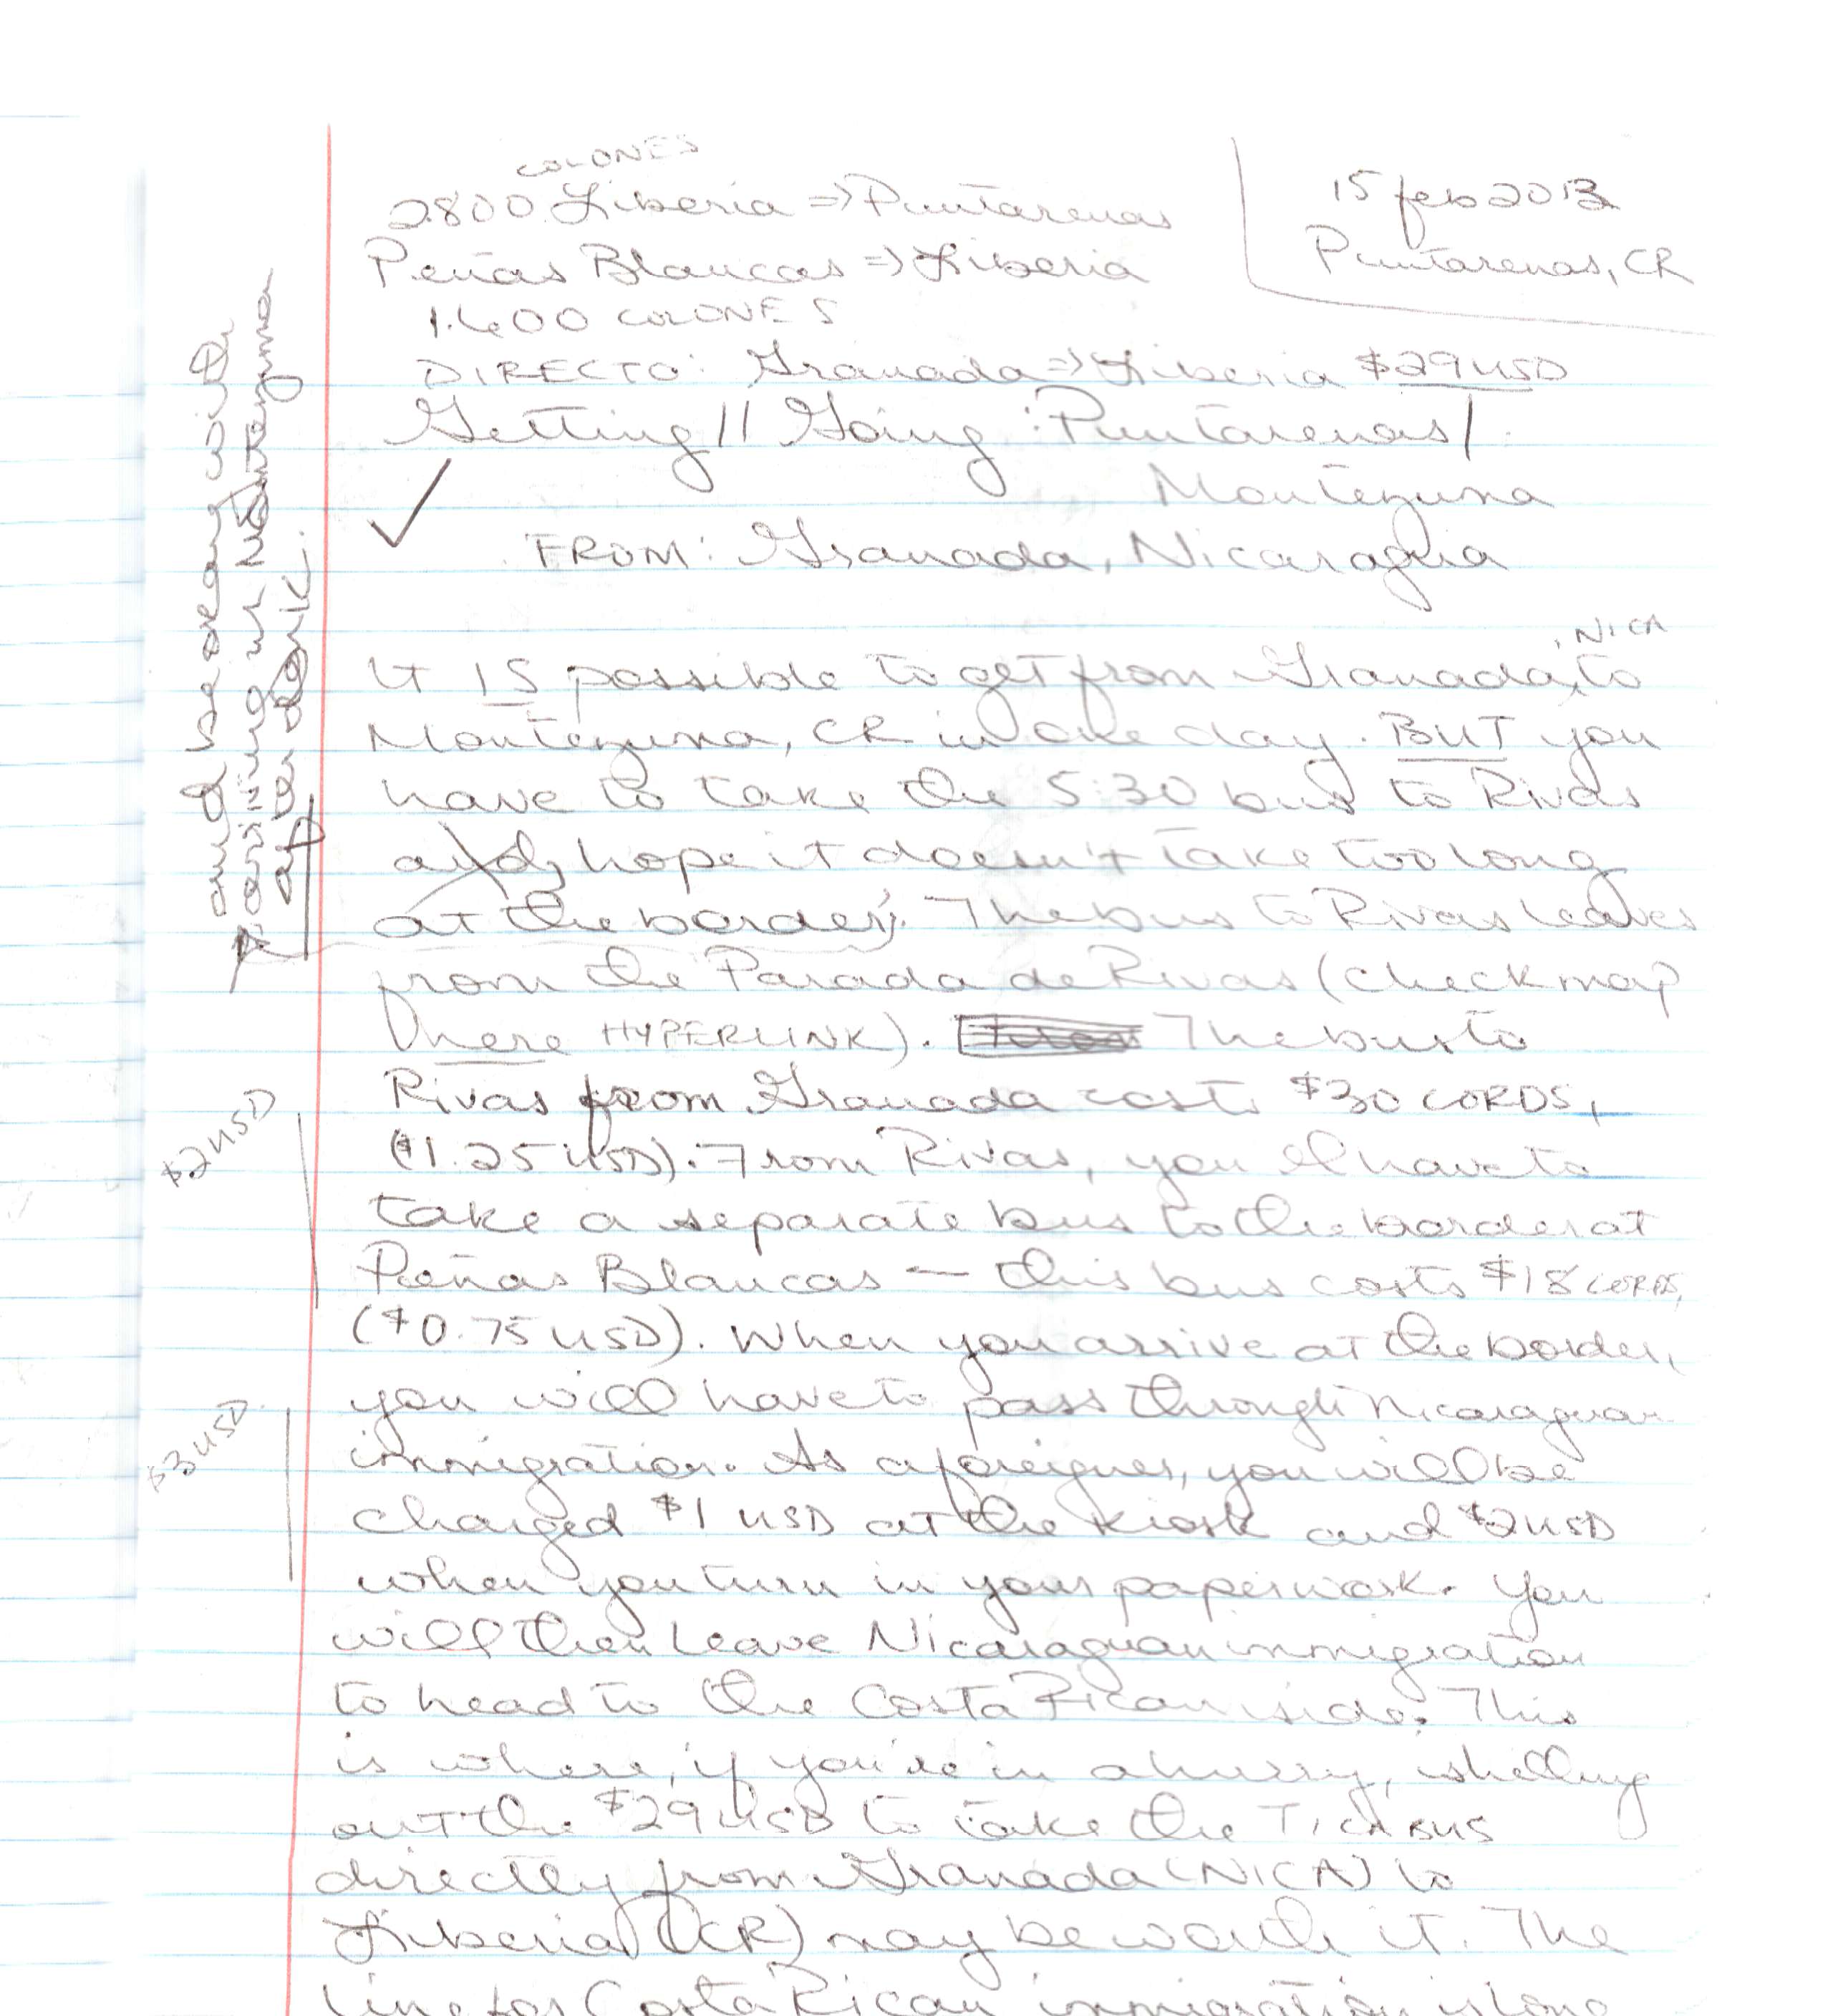 COLONES
2.800 Liberia => Puntarenas
Peñas Blancas => Liberia
1.600 COLONES
15 feb 2013
Puntarenas, CR
DIRECTO: Granada => Liberia $29 USD
Getting // Going : Puntarenas /
Montezuma
FROM: Granada, Nicaragua
, NICA
It IS possible to get from Granada, to
Montezuma, CR in one day. BUT you
have to take the 5:30 bus to Rivas
and, hope it doesn't take too long
at the border,. The bus to Rivas leaves
from the Parada de Rivas (check map
here HYPERLINK). The bus to
Rivas from Granada costs $30 CORDS,
($1.25 USD). From Rivas, you'll have to
take a separate bus to the border at
Peñas Blancas — this bus costs $18 CORDS,
($0.75 USD). When you arrive at the border,
you will have to pass through Nicaraguan
immigration. As a foreigner, you will be
charged $1 USD at the kiosk and $2 USD
when you turn in your paperwork. You
will then leave Nicaraguan immigration
to head to the Costa Rican side. This
is where, if you're in a hurry, shelling
out the $29 USD to take the TICA BUS
directly from Granada (NICA) to
Liberia (CR) may be worth it. The
line for Costa Rican immigration is long
and be okay with
arriving at Montezuma
after dark.
$2 USD
$3 USD